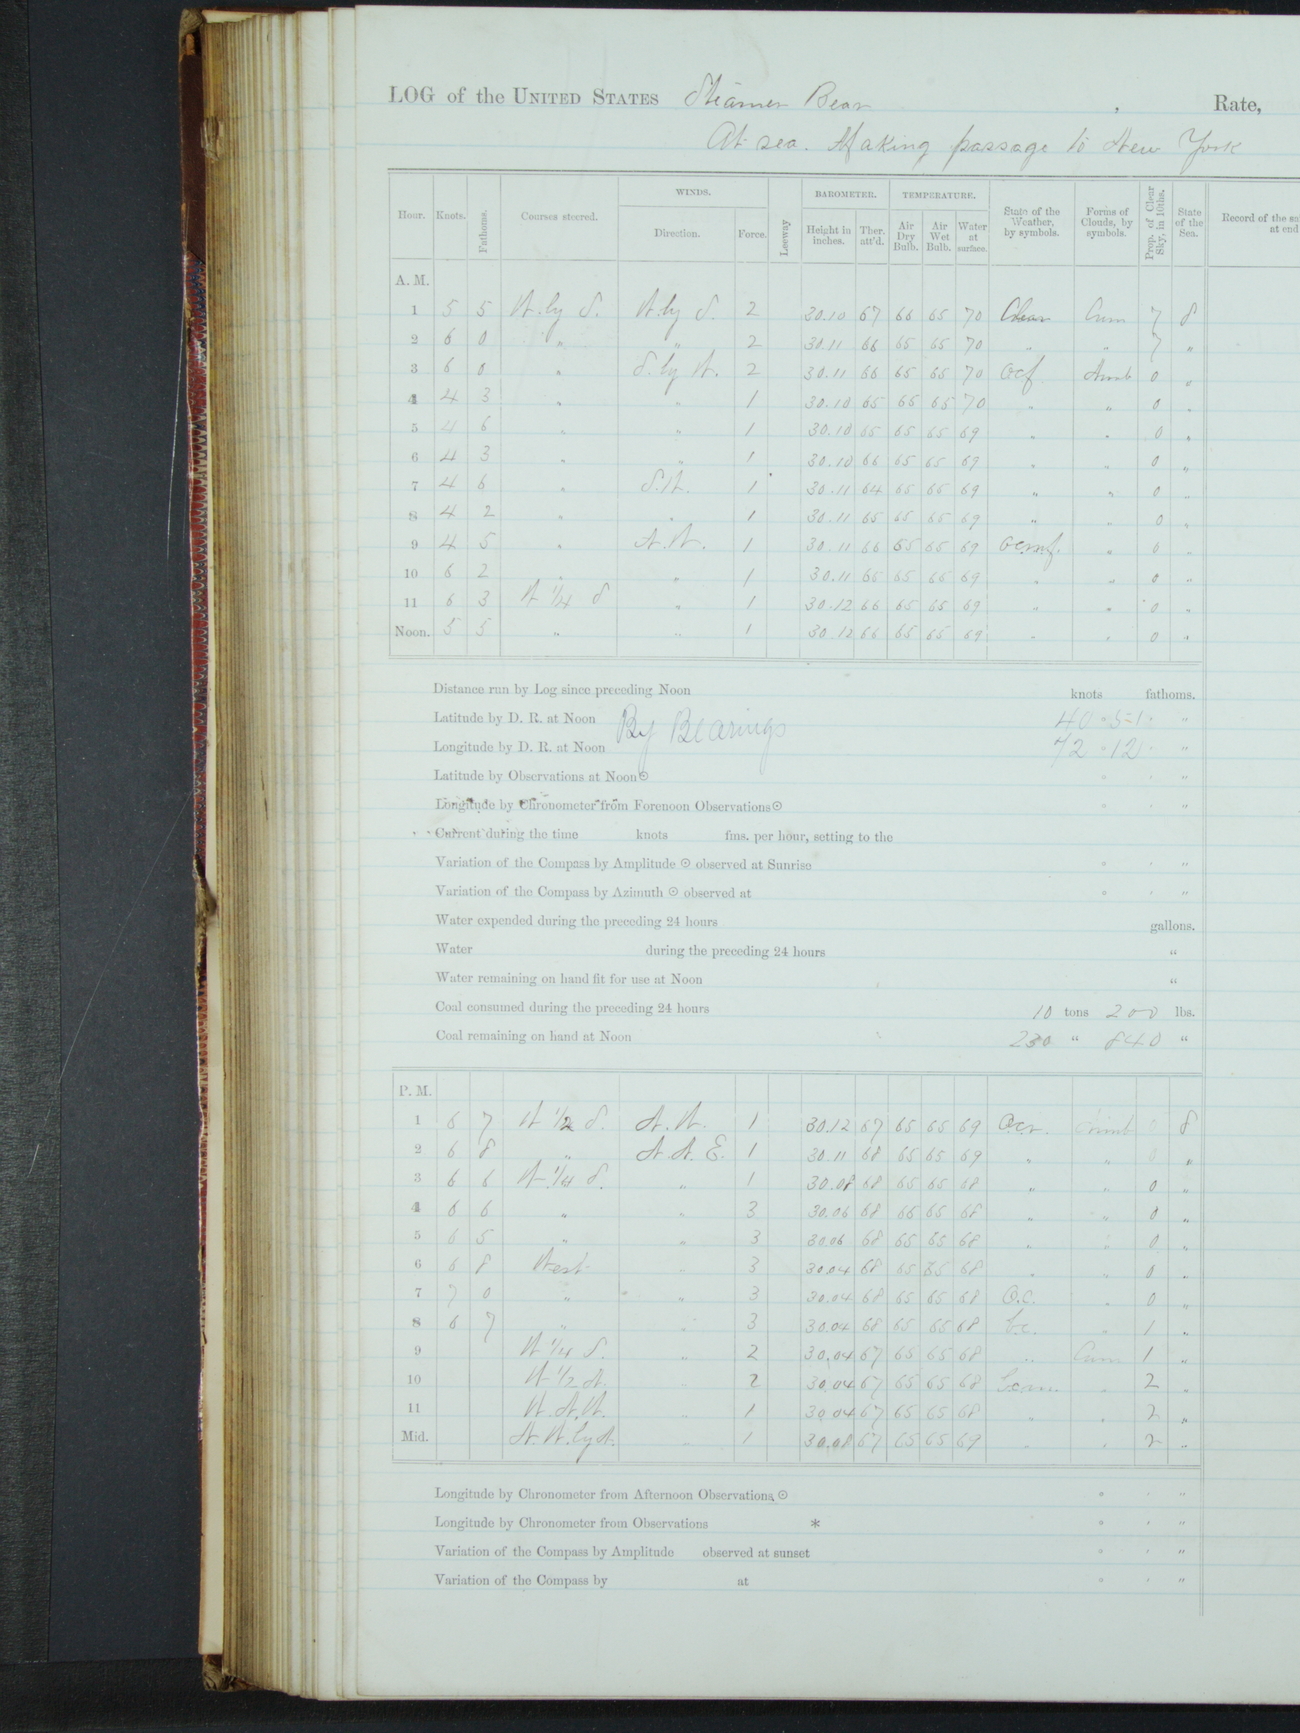 LOG of the UNITED STATES Steamer Bear , Rate,
At sea. Making passage to New York
Hour. Knots. Fathoms. Courses steered. WINDS. Direction. Force. Leeway BAROMETER. Height in inches. Ther. att'd. TEMPERATURE. Air Dry Bulb. Air Wet Bulb. Water at surface. State of the Weather, by symbols. Forms of Clouds, by symbols. Prop. of Clear Sky, in 10ths. State of the Sea. Record of the sa
at end
A. M.
1 5 5 W. by S. W. by S. 2 30.10 67 66 65 70 Clear Cum 7 S
2 6 0 " " 2 30.11 66 65 65 70 " " 7 "
3 6 0 " S. by W. 2 30.11 66 65 65 70 Ocf Nimb 0 "
4 4 3 " " 1 30.10 65 66 65 70 " " 0 "
5 4 6 " " 1 30.10 65 65 65 69 " " 0 "
6 4 3 " " 1 30.10 66 65 65 69 " " 0 "
7 4 6 " S.W. 1 30.11 64 65 66 69 " " 0 "
8 4 2 " " 1 30.11 65 65 65 69 " " 0 "
9 4 5 " N.W. 1 30.11 66 65 65 69 Ocmf. " 0 "
10 6 2 " " 1 30.11 66 65 66 69 " " 0 "
11 6 3 W 1/4 S " 1 30.12 66 65 65 69 " " 0 "
Noon. 5 5 " " 1 30.12 66 65 65 69 " " 0 "
Distance run by Log since preceding Noon knots fathoms.
Latitude by D. R. at Noon By Bearings 40 ° 51 ' "
Longitude by D. R. at Noon 72 ° 12 ' "
Latitude by Observations at Noon ☉ ° ' "
Longitude by Chronometer from Forenoon Observations ☉ ° ' "
Current during the time knots fms. per hour, setting to the
Variation of the Compass by Amplitude ☉ observed at Sunrise ° ' "
Variation of the Compass by Azimuth ☉ observed at ° ' "
Water expended during the preceding 24 hours gallons.
Water during the preceding 24 hours "
Water remaining on hand fit for use at Noon "
Coal consumed during the preceding 24 hours 10 tons 200 lbs.
Coal remaining on hand at Noon 230 " 840 "
P. M.
1 6 7 W 1/2 S. N.W. 1 30.12 67 65 65 69 Ocr. Nimb 0 S
2 6 8 " N.N.E. 1 30.11 68 65 65 69 " " 0 "
3 6 6 W 1/4 S. " 1 30.08 68 65 65 68 " " 0 "
4 6 6 " " 3 30.06 68 66 65 68 " " 0 "
5 6 5 " " 3 30.06 68 65 65 68 " " 0 "
6 6 8 West " 3 30.04 68 65 65 68 " " 0 "
7 7 0 " " 3 30.04 68 65 65 68 O.c. " 0 "
8 6 7 " " 3 30.04 68 65 65 68 b.c. " 1 "
9 W 1/4 S. " 2 30.04 67 65 65 68 " Cum 1 "
10 W 1/2 N. " 2 30.04 67 65 65 68 " 2 "
11 W.N.W. " 1 30.04 67 65 65 68 " " 2 "
Mid. N.W. by N. " 1 30.08 67 65 65 69 " " 2 "
Longitude by Chronometer from Afternoon Observations, ☉ ° ' "
Longitude by Chronometer from Observations * ° ' "
Variation of the Compass by Amplitude observed at sunset ° ' "
Variation of the Compass by at ° ' "